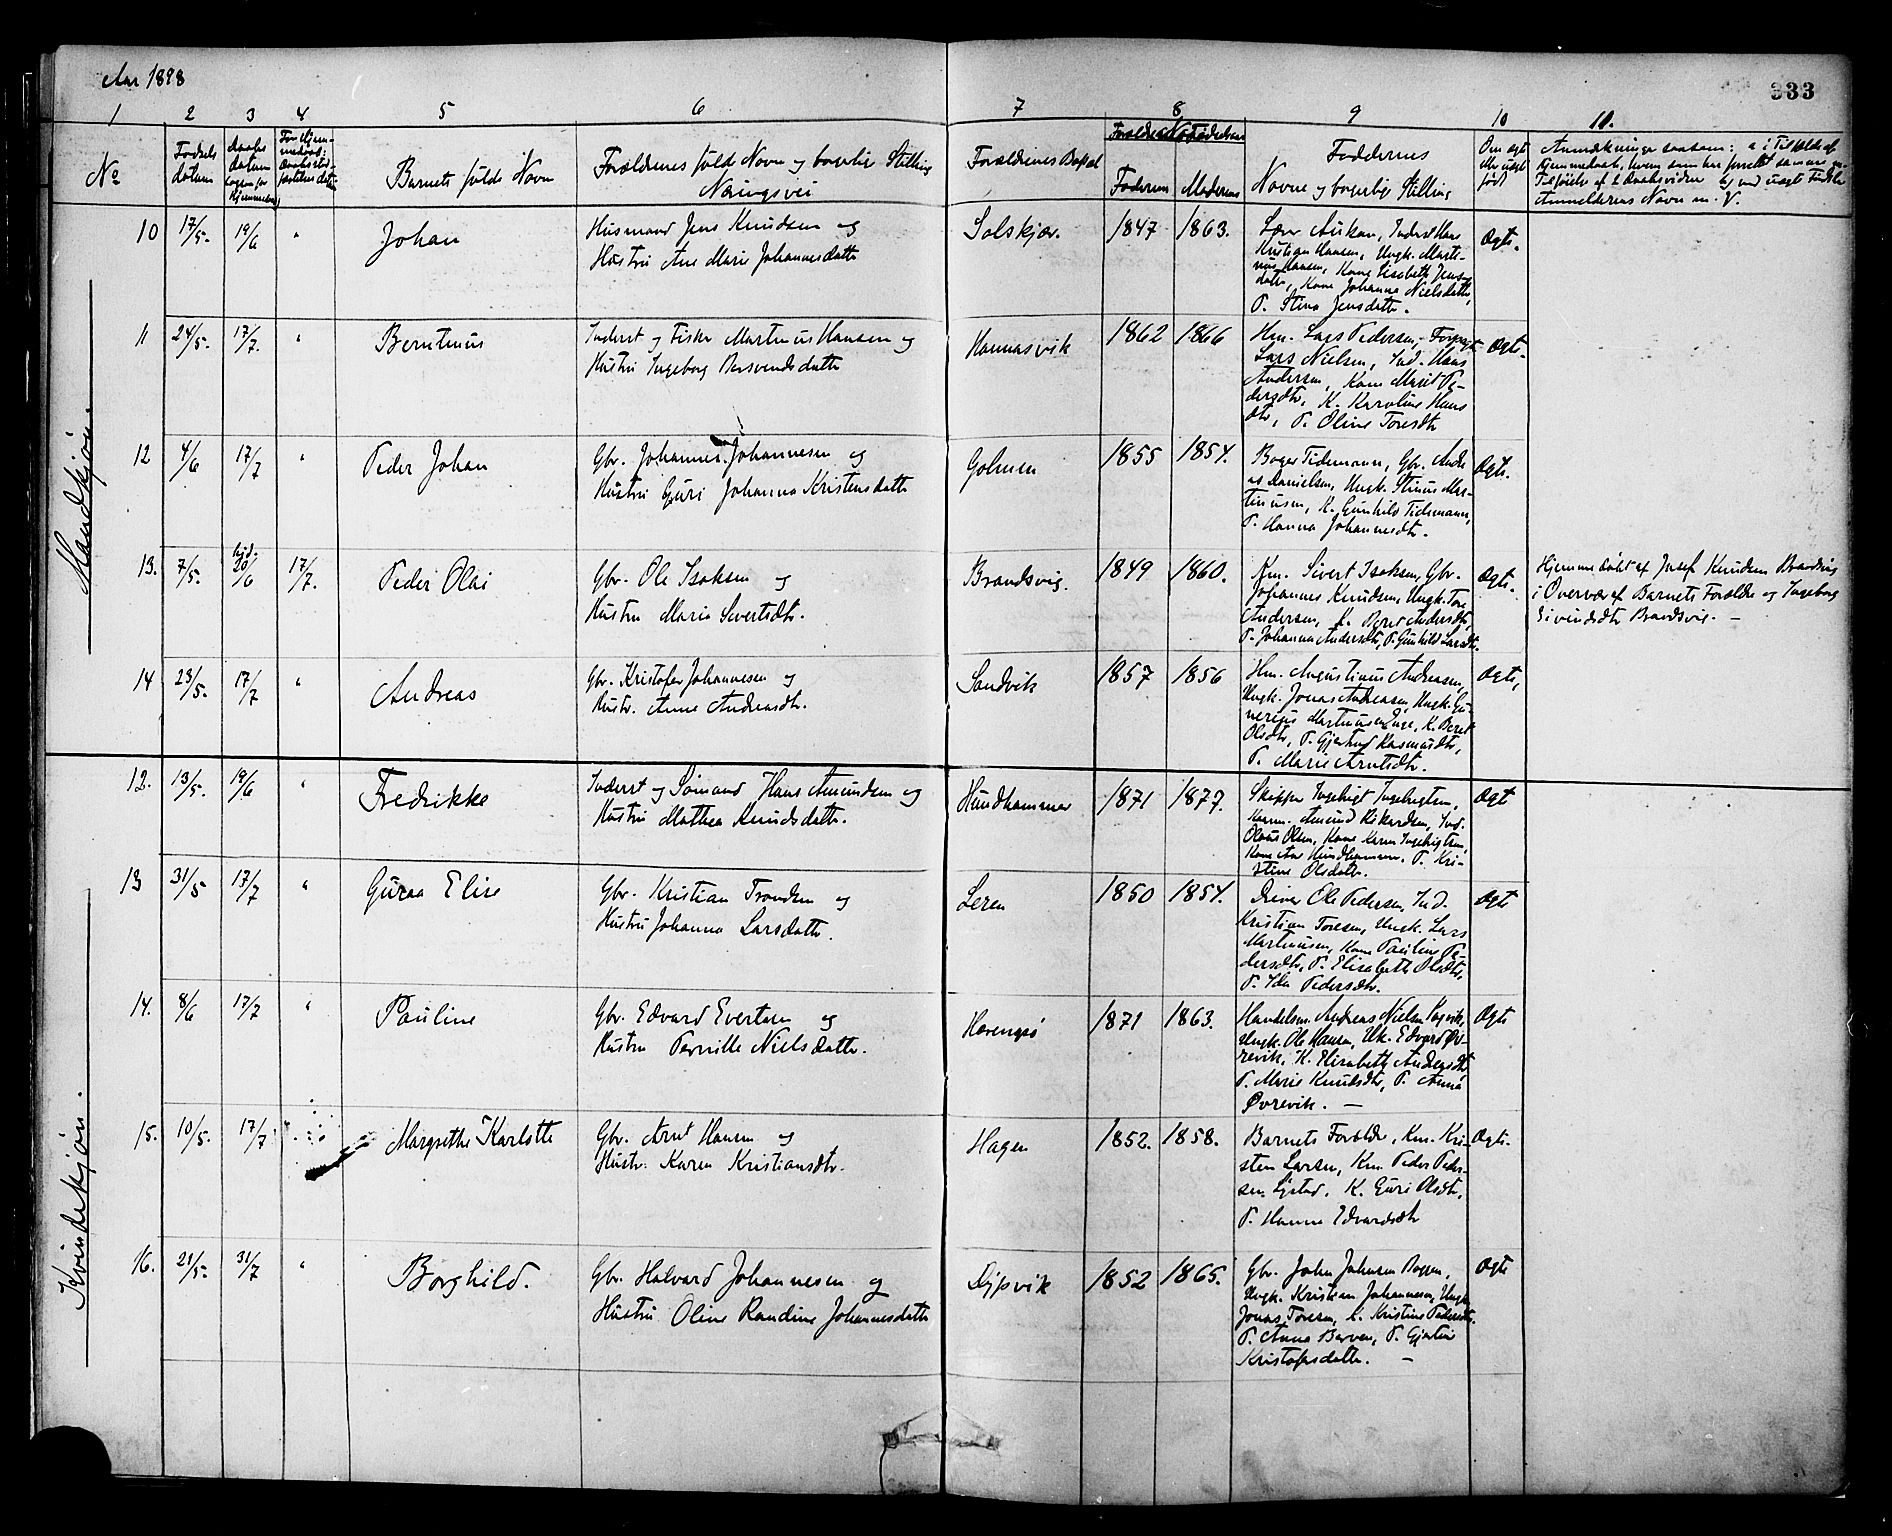 Aar 1898
333
1 2 3 4 5 6 7 8 9 10 11.
No
Fødsels datum
Daabs datum
Barnets fulde Navn
Forældrenes fuld Navn og borgerlige Stilling
Næringsvei
Forældrenes Bopæl
Faderens Moderens
Faddernes
Navne og borgerlige Stilling
Om ægt eller uægt født
Mandkjøn.
10 17/5. 19/6 " Johan
Husmand Jens Knudsen og
Hustru Ane Marie Johannesdatte
Solskjær. 1847 1863.
Hans
Kristian Hansen, Ungk. Marti-
nus Hansen, Kone Lisabeth Jens-
datte, Kone Johanna Nielsdatte,
P. Stina Jensdatte.
Ægte.
11 24/5. 17/7. " Berntinus
Inderst og Fisker Martinus Hansen og
Hustru Ingeborg Bersvendsdatte
Hannasvik 1862 1866
Hm. Lars Pedersen, Forpagt
Lars Nielsen, Ind. Hans
Andersen, Kone Marit Pe-
dersdtr, K. Karoline Hans
dtr, P. Oline Toresdtr
Ægte.
12 4/6 17/7 " Peder Johan
Gbr. Johannes Johannesen og
Hustru Guri Johanna Kristensdatte
Golmen 1855 1854.
Boger Tidemann, Gbr. Andre
as Danielsen, Ungk. Stinus Mar-
tinusen, K. Gunhild Tidemann,
P. Hanna Johannesdtr.
Ægte.
13. 7/5. hjd. 20/6 17/7. Peder Olai
Gbr. Ole Isaksen og
Hustru Marie Sivertsdtr.
Brandsvig. 1849 1860.
Km. Sivert Isaksen, Gbr.
Johannes Knudsen, Ungk. Tore
Andersen, K. Beret Andersdtr,
P. Johanna Andersdtr, P. Gunhild Larsdtr.
Ægte.
Hjemmedøbt af Josef Knudsen Brandsvig
i Overvær af Barnets Forældre og Ingeborg
Eivindsdtr Brandsvig. —
14 23/5. 17/7 " Andreas
Gbr. Kristofer Johannesen og
Hustr. Anne Andreasdtr.
Sandvik 1857 1856
Hm. Augustinus Andreasen,
Ungk. Jonas Andreasen, Ungk. Gu-
nerius Martinusen Enge, K. Beret
Olsdtr, P. Gjertrud Rasmusdtr,
P. Marie Arntsdtr.
Ægte,
Kvindekjøn.
12. 13/5. 19/6 " Fredrikke
Inderst og Sømand Hans Amundsen og
Hustru Mathea Knudsdatte.
Hundhammer 1871 1877.
Skipper Ingebrigt Ingebrigtsen,
Amund Rikardsen, Ind.
Olaus Olsen, Kone Karen Ingebrigtsen,
Kone Ane Hundhammer, P. Kri-
stine Olsdatte.
Ægt
13 31/5 17/7 " Guraa Elise
Gbr. Kristian Trondsen og
Hustru Johanna Larsdatte.
Leren 1850 1854.
Ole Pedersen, Ind.
Kristian Toresen, Ungk. Lars
Martinusen, Kone Pauline Pe-
dersdtr, P. Elisabeth Olsdtr,
P. Ida Pedersdtr.
Ægte
14. 8/6 17/7 " Pauline
Gbr. Edvard Evertsen og
Hustru Pernille Nielsdatte.
Herengsø 1871 1863.
Handelsm. Andreas Nielsen Vaagvik,
Ungk. Ole Hansen, Uk. Edvard Øv-
revik, K. Elisabeth Andreasdtr,
P. Marie Knudsdtr, P. Anna
Øvrevik. —
Ægte
15. 10/5. 17/7 " Margrethe Karlotte
Gbr. Arnt Hansen og
Hustr. Karen Kristiansdtr.
Hagen 1852. 1858.
Barnets Forældre, Km. Kri-
sten Larsen, Km. Peder Peder-
sen Lystad, K. Guri Olsdtr,
P. Hanna Edvardsdtr
Ægte.
16. 21/5. 31/7 " Borghild.
Gbr. Halvard Johannesen og
Hustru Oline Randine Johannesdatte
Djupvik 1852 1865.
Gbr. John Johnsen Bogen,
Ungk. Kristian Johannesen, Ungk.
Jonas Toresen, K. Kristine Pedersdtr,
P. Anna Berven, P. Gjertine
Kristofersdatte. —
Ægte